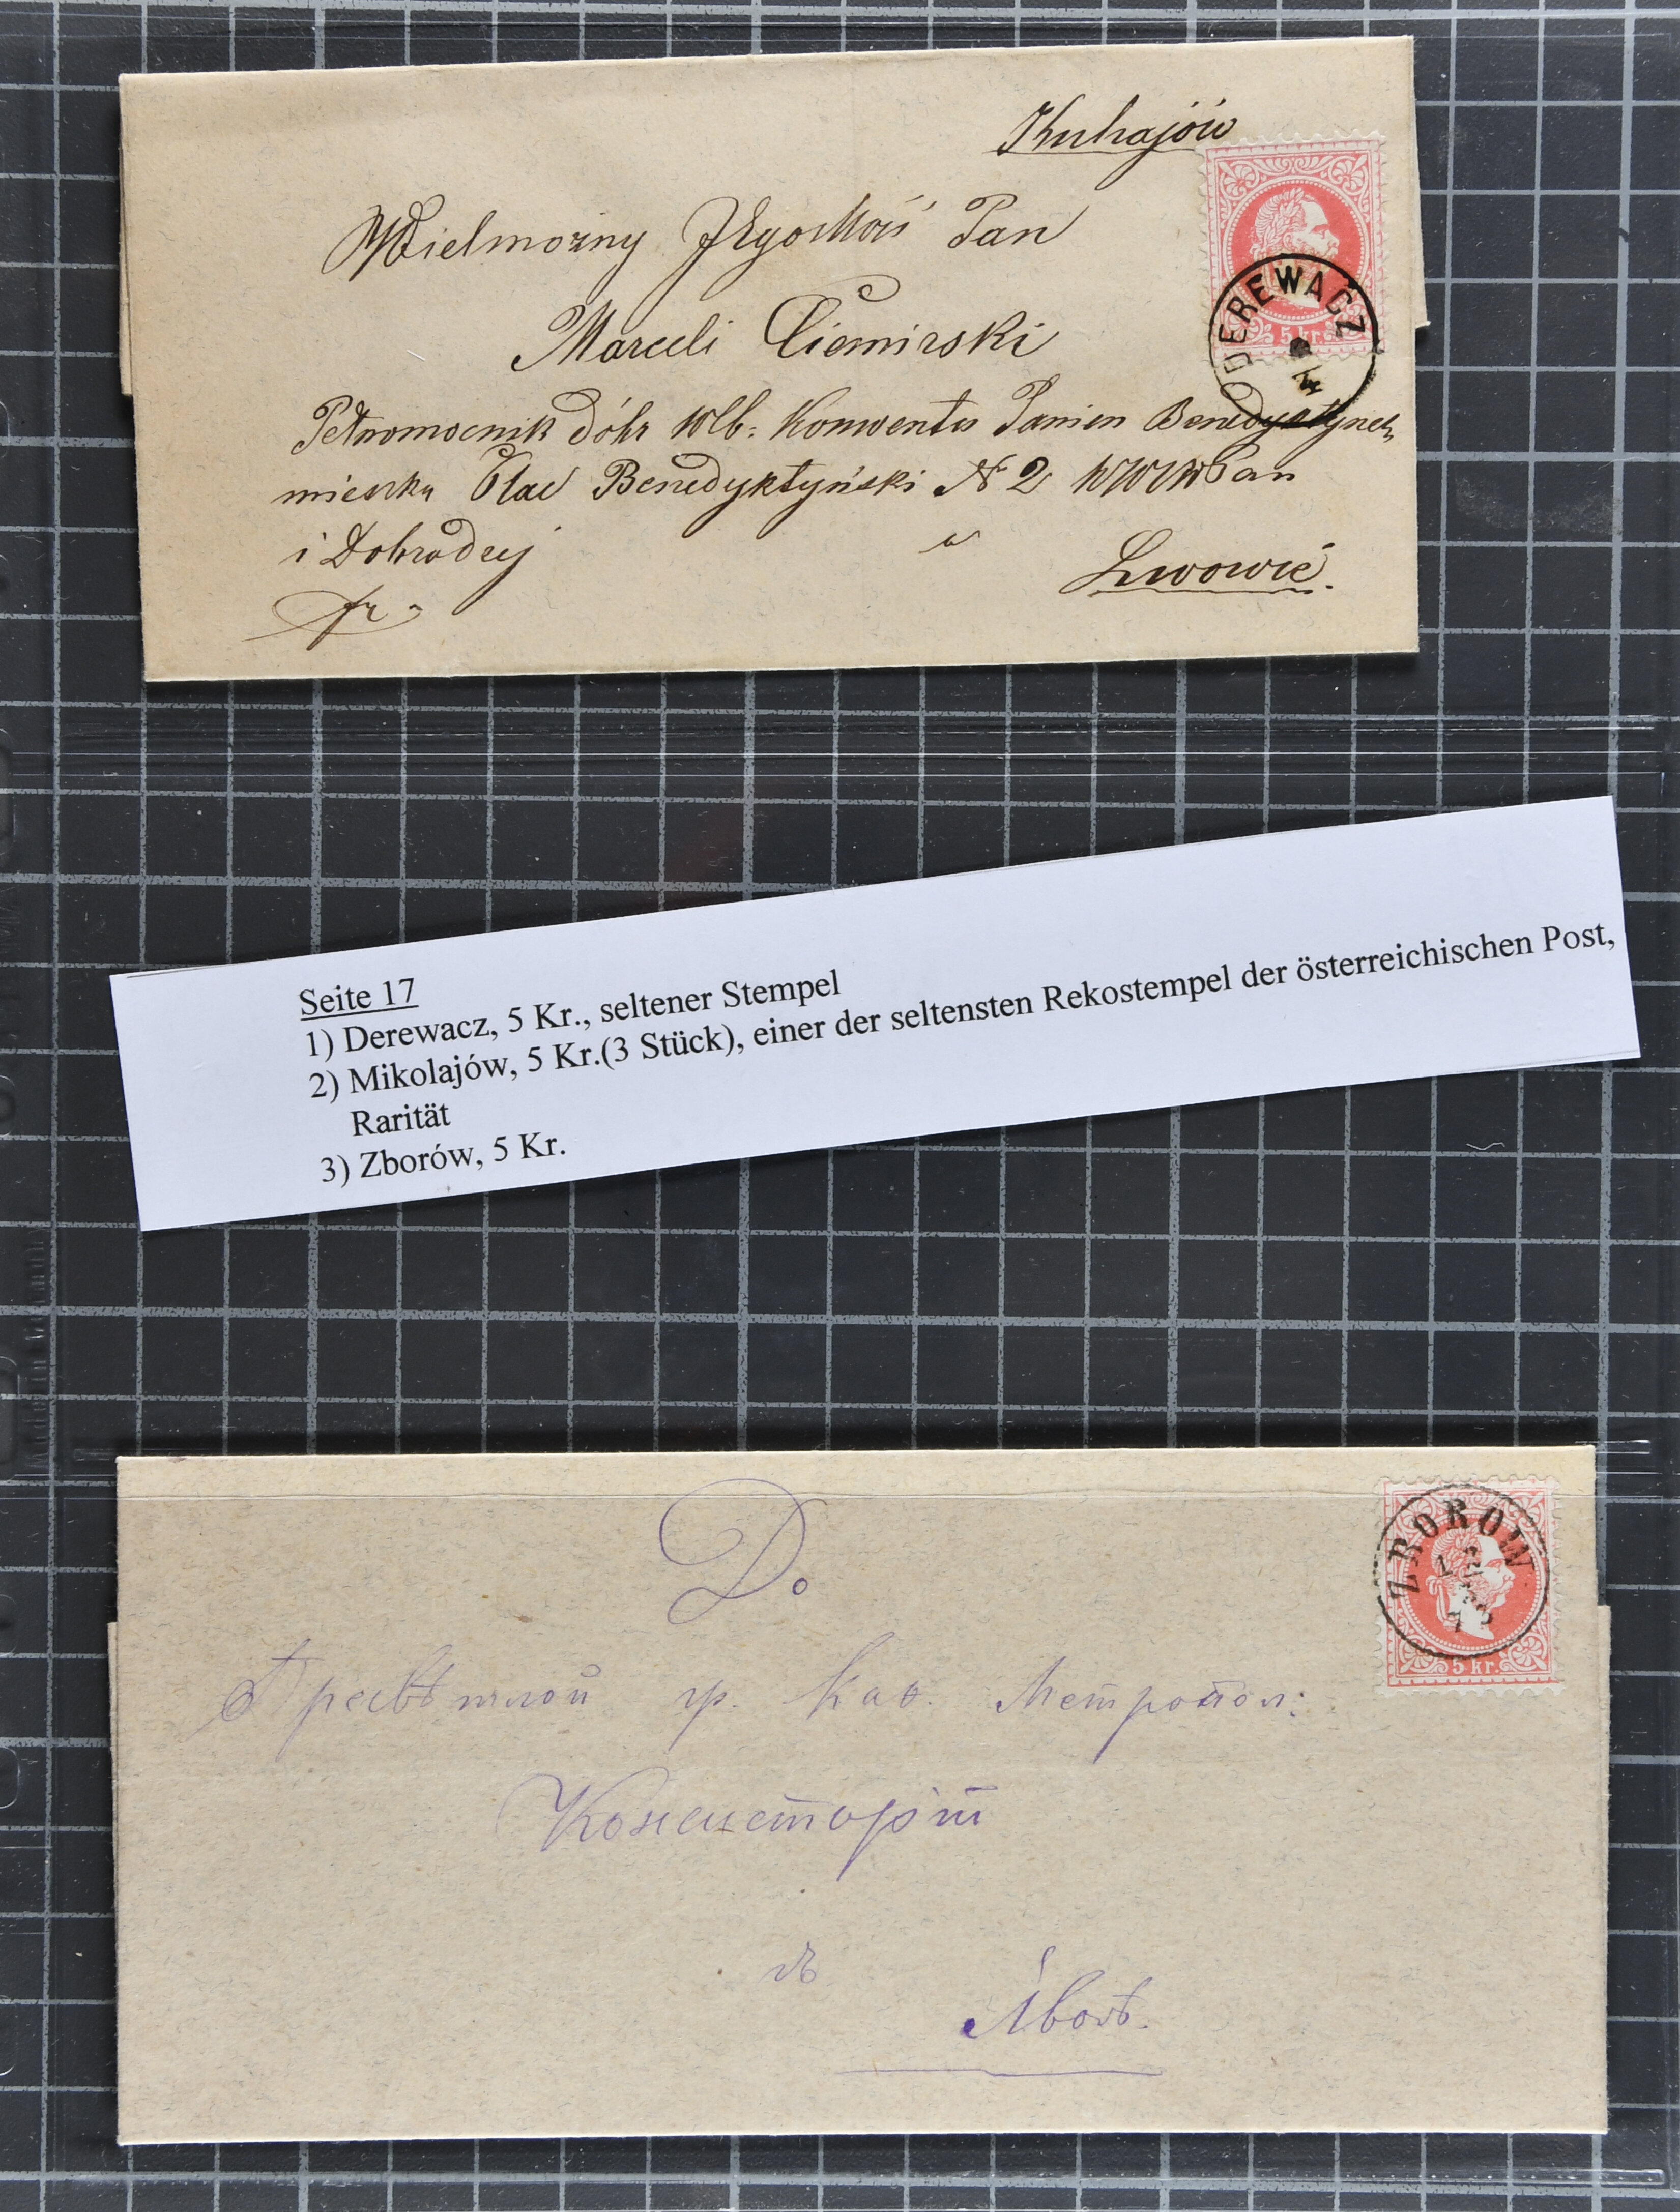 Kuhajów
Wielmożny JEgomość Pan
Marceli Ciemirski
5 kr.
DEREWACZ
/4
Pełnomocnik dóbr Wlb: Konwentu Panien Benedyktynek
mieszka Plac Benedyktyński N 2 WWW Pan
i Dobrodzej
w Lwowie.
fr
Seite 17
1) Derewacz, 5 Kr., seltener Stempel
2) Mikolajów, 5 Kr.(3 Stück), einer der seltensten Rekostempel der österreichischen Post,
Rarität
3) Zborów, 5 Kr.
ZBOROW
5 kr.
До
Пресвѣтлой гр. Каѳ. Метропол:
Консисторіи
въ
Львовѣ.